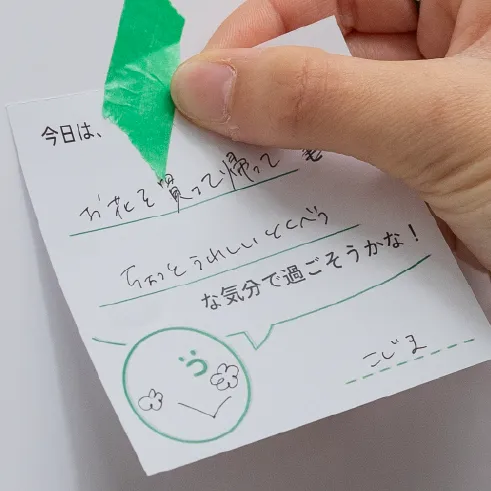 今日は、
お花を買って帰って
ちょっとうれしいとくべつ
な気分で過ごそうかな！
こじま